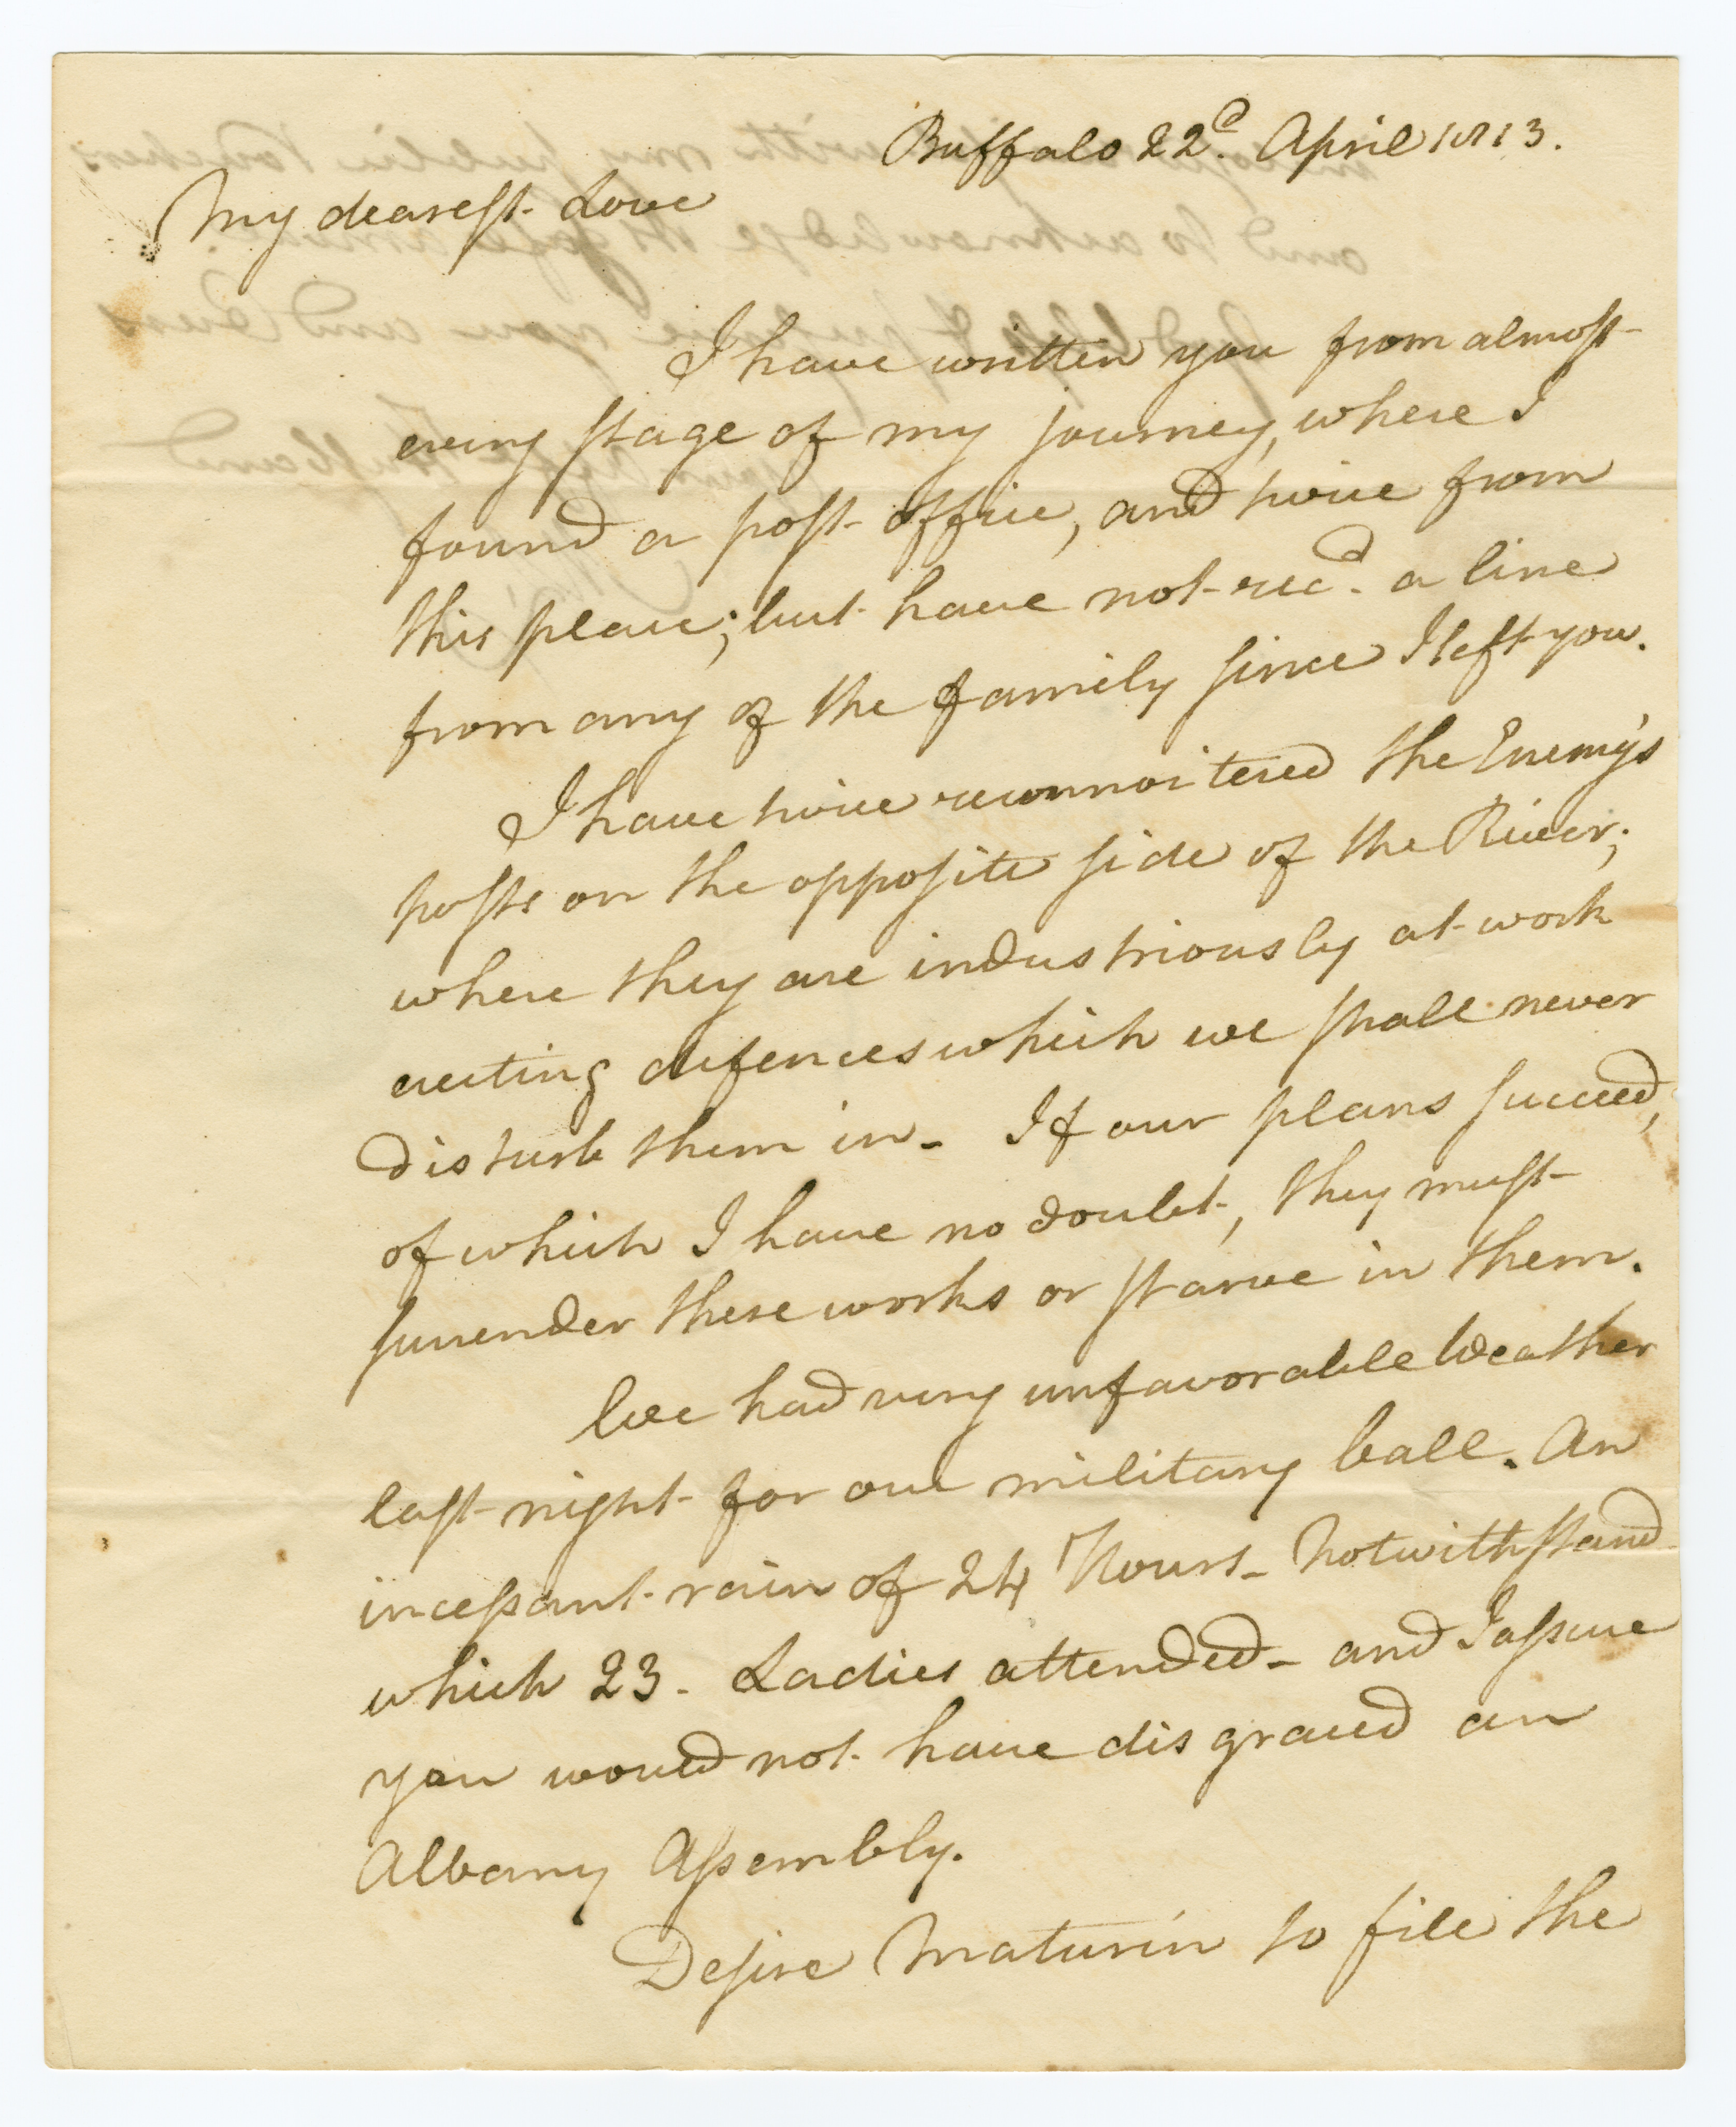 Buffalo 22d. April 1813.
My dearest Love
I have written you from almost
every stage of my journey, where I
found a post office, and twice from
this place; but have not recd. a line
from any of the family since I left you.
I have twice reconnoitered the Enemy's
posts on the opposite side of the River;
where they are industriously at work
erecting defences which we shall never
disturb them in - If our plans succeed,
of which I have no doubt, they must
surrender these works or starve in them.
We had very unfavorable Weather
last night for our military ball. An
incessant rain of 24 Hours - Notwithstand
which 23. Ladies attended - and I assure
you would not have disgraced an
Albany Assembly.
Desire Maturin to file the